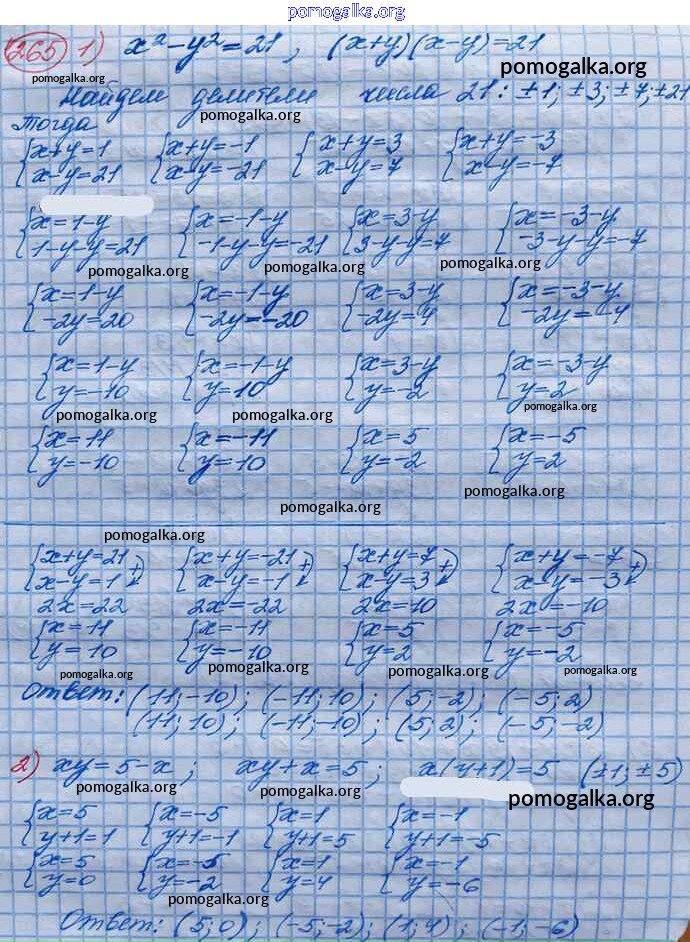 pomogalka.org
265 1) x²-y²=21; (x+y)(x-y)=21
pomogalka.org pomogalka.org
Найдем делители числа 21: ±1; ±3; ±7; ±21
pomogalka.org
Тогда
{x+y=1 {x+y=-1 {x+y=3 {x+y=-3
{x-y=21 {x-y=-21 {x-y=7 {x-y=-7
{x=1-y {x=-1-y {x=3-y {x=-3-y
{1-y-y=21 {-1-y-y=-21 {3-y-y=7 {-3-y-y=-7
pomogalka.org pomogalka.org pomogalka.org
{x=1-y {x=-1-y {x=3-y {x=-3-y
{-2y=20 {-2y=-20 {-2y=4 {-2y=-4
{x=1-y {x=-1-y {x=3-y {x=-3-y
{y=-10 {y=10 {y=-2 {y=2
pomogalka.org pomogalka.org pomogalka.org
{x=11 {x=-11 {x=5 {x=-5
{y=-10 {y=10 {y=-2 {y=2
pomogalka.org pomogalka.org
pomogalka.org
{x+y=21 {x+y=-21 {x+y=7 {x+y=-7
{x-y=1 + {x-y=-1 + {x-y=3 + {x-y=-3 +
2x=22 2x=-22 2x=10 2x=-10
{x=11 {x=-11 {x=5 {x=-5
{y=10 {y=-10 {y=2 {y=-2
pomogalka.org pomogalka.org pomogalka.org pomogalka.org
Ответ: (11;-10); (-11;10); (5;-2); (-5;2)
(11;10); (-11;-10); (5;2); (-5;-2)
2) xy=5-x; xy+x=5; x(y+1)=5 (±1;±5)
pomogalka.org pomogalka.org pomogalka.org
{x=5 {x=-5 {x=1 {x=-1
{y+1=1 {y+1=-1 {y+1=5 {y+1=-5
{x=5 {x=-5 {x=1 {x=-1
{y=0 {y=-2 {y=4 {y=-6
pomogalka.org
Ответ: (5;0); (-5;-2); (1;4); (-1;-6)